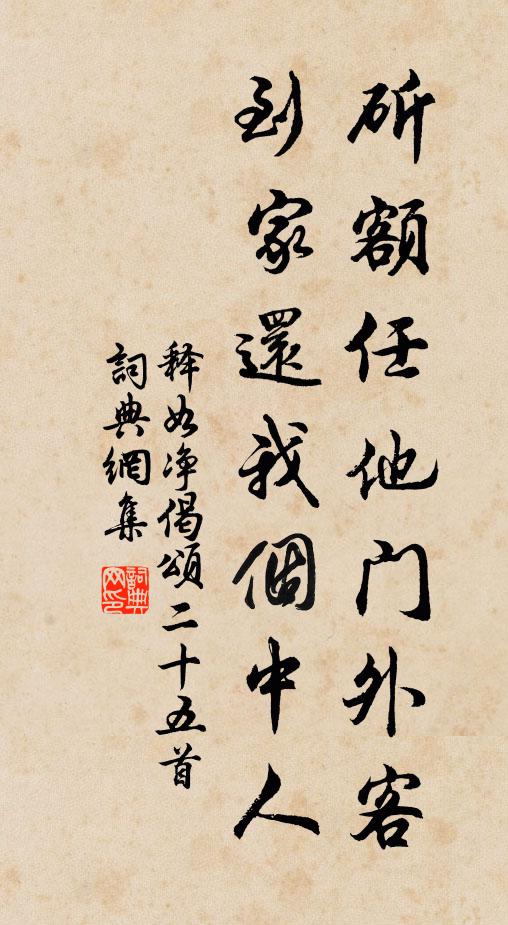 斫額任他門外客
到家還我個中人
释如净偈頌二十五首
詞典網集
詞典网印